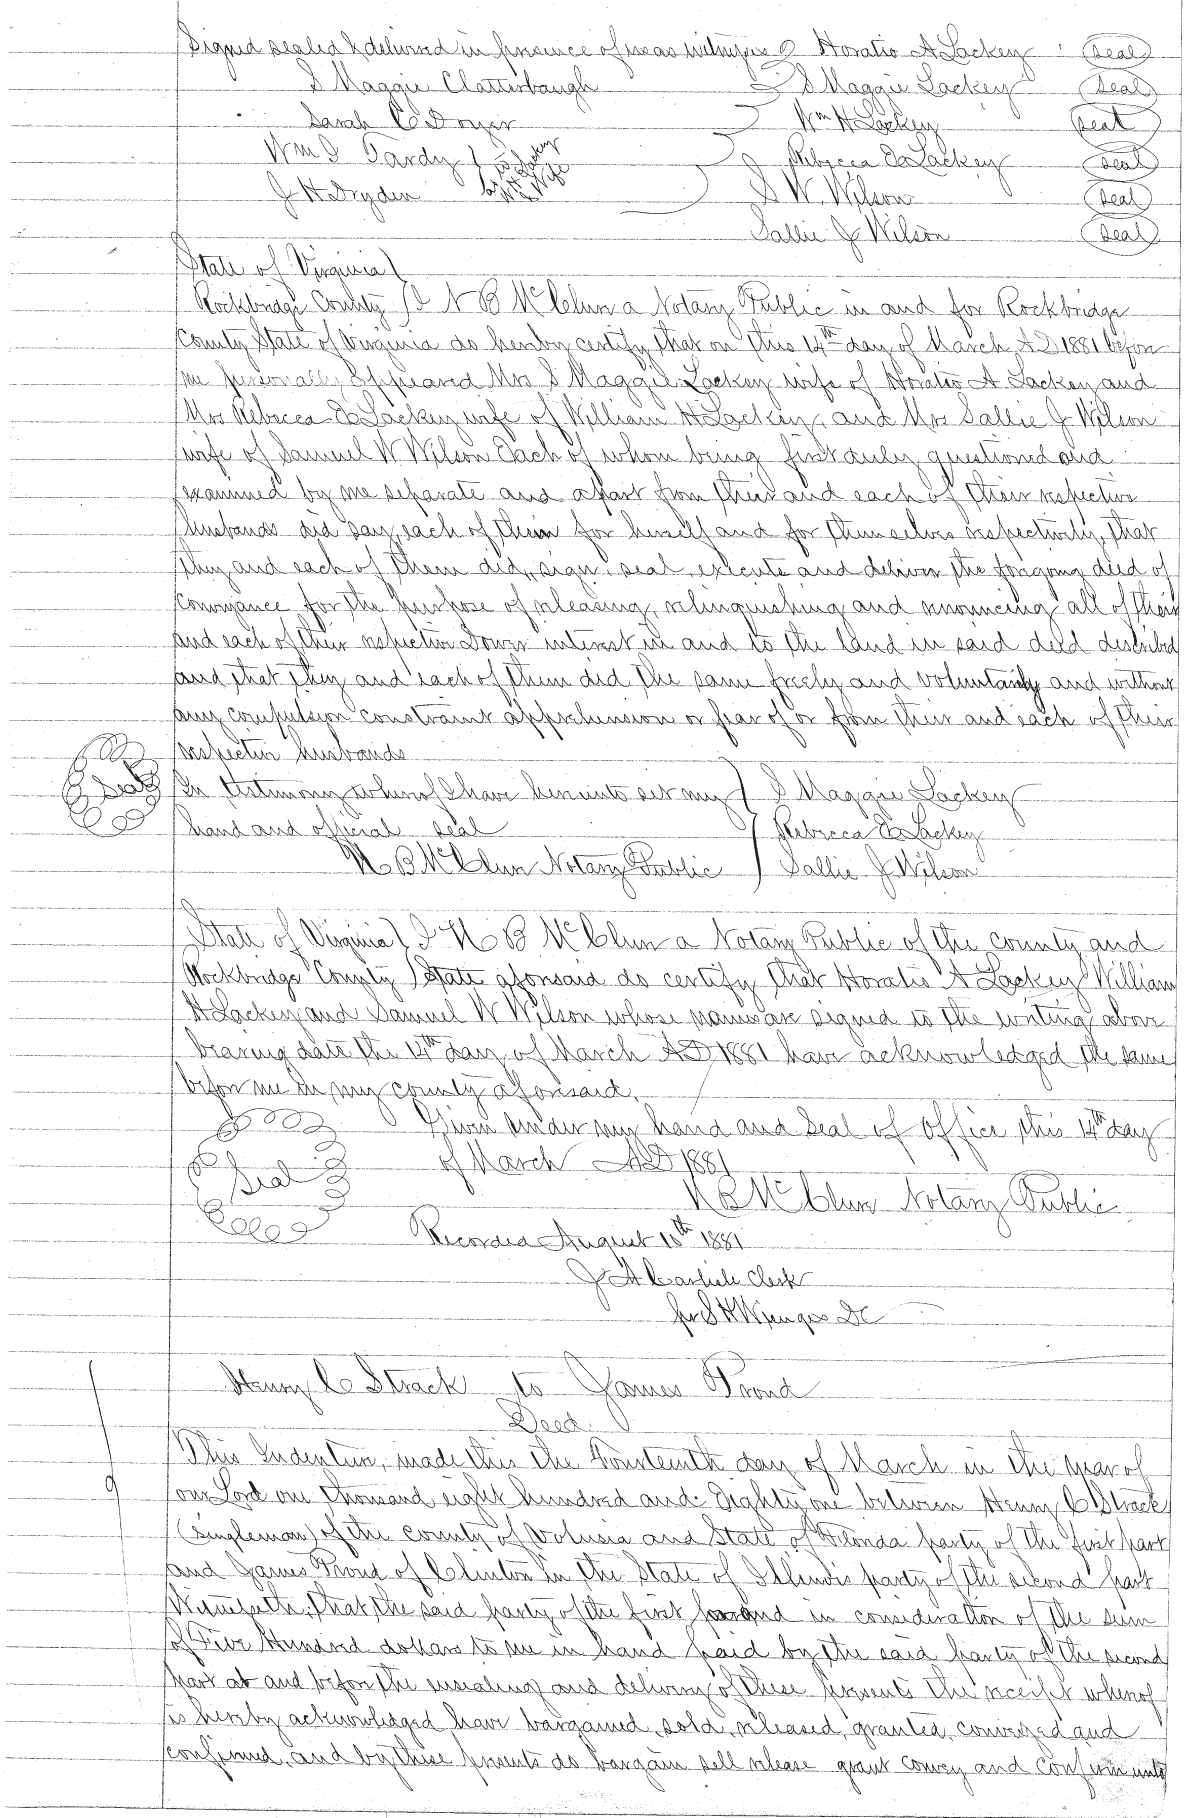 Signed sealed & delivered in presence of us as witnesses Horatio A Lackey seal
S Maggie Clatterbaugh S Maggie Lackey seal
Sarah C Doyer Wm H Lackey seal
Wm S Tardy as to Rebecca E Lackey seal
J H Dryden W H Lackey & Wife S W. Wilson seal
Sallie J Wilson seal
State of Virginia
Rockbridge County I N B McClun a Notary Public in and for Rockbridge
County State of Virginia do hereby certify that on this 14th day of March AD 1881 before
me personally appeared Mrs S Maggie Lackey wife of Horatio A Lackey and
Mrs Rebecca E Lackey wife of William H Lackey, and Mrs Sallie J Wilson
wife of Samuel W Wilson Each of whom being first duly questioned and
examined by me separate and apart from their and each of their respective
husbands did say, each of them for herself and for themselves respectively, that
they and each of them did, sign, seal, execute and deliver the foregoing deed of
conveyance for the purpose of releasing, relinquishing and renouncing all of their
and each of their respective Dower interest in and to the land in said deed described
and that they and each of them did the same freely and voluntarily and without
any compulsion constraint apprehension or fear of or from their and each of their
respective husbands
Seal In testimony whereof I have hereunto set my S Maggie Lackey
hand and official seal Rebecca E Lackey
N B McClun Notary Public Sallie J Wilson
State of Virginia I N B McClun a Notary Public of the county and
Rockbridge County State aforesaid do certify that Horatio A Lackey William
H Lackey and Samuel W Wilson whose names are signed to the writing above
bearing date the 14th day of March AD 1881 have acknowledged the same
before me in my county aforesaid.
Given under my hand and Seal of Office this 14th day
Seal of March AD 1881
N B McClun Notary Public
Recorded August 10th 1881
J A Carlisle Clerk
per S H DC
Henry C Strack to James Proud
Deed
This Indenture, made this the Fourteenth day of March in the year of
our Lord one thousand eight hundred and Eighty one between Henry C Strack
(singleman) of the county of Volusia and State of Florida party of the first part
and James Proud of Clinton in the State of Illinois party of the second part
Witnesseth, that the said party of the first and in consideration of the sum
of Five Hundred dollars to me in hand paid by the said party of the second
part at and before the ensealing and delivery of these presents the receipt whereof
is hereby acknowledged have bargained, sold, released, granted, conveyed and
confirmed, and by these presents do bargain sell release grant convey and confirm unto